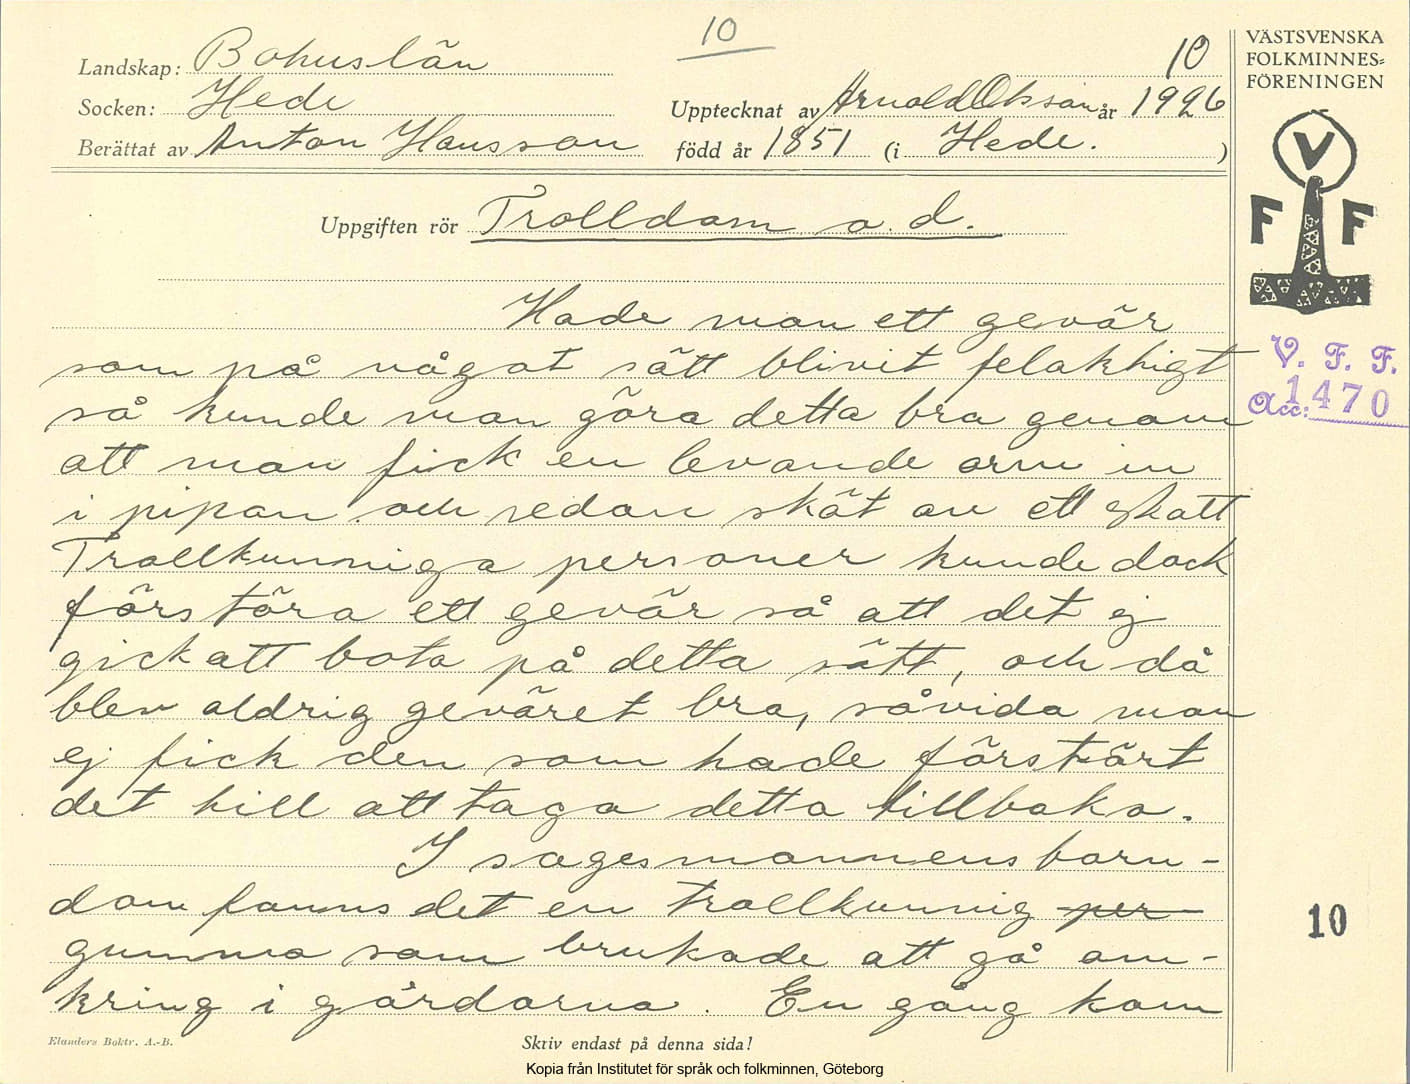 10
10
Landskap: Bohuslän
Socken: Hede
Upptecknat av Arnold Olsson år 1926
Berättat av Anton Hansson född år 1851 (i Hede. )
Uppgiften rör Trolldom o. d.
Hade man ett gevär
som på något sätt blivit felaktigt
så kunde man göra detta bra genom
att man fick en levande orm in
i pipan och sedan sköt av ett skott
Trollkunniga personer kunde dock
förstöra ett gevär så att det ej
gick att bota på detta sätt, och då
blev aldrig geväret bra, såvida man
ej fick den som hade förstört
det till att taga detta tillbaka.
I sagesmannens barn-
dom fanns det en trollkunnig per
gumma som brukade att gå om-
kring i gårdarna. En gång kom
Elanders Boktr. A.-B.
Skriv endast på denna sida!
Kopia från Institutet för språk och folkminnen, Göteborg
VÄSTSVENSKA
FOLKMINNES=
FÖRENINGEN
V
F F
V. F. F.
Acc: 1470
10